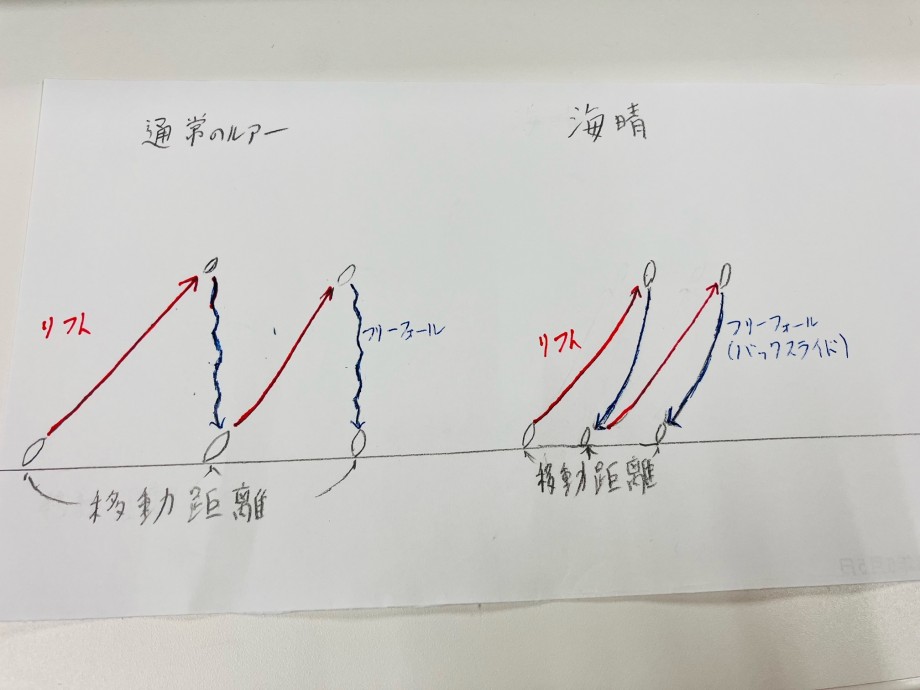 通常のルアー
海晴
リフト
フリーフォール
移動距離
リフト
フリーフォール
(バックスライド)
移動距離